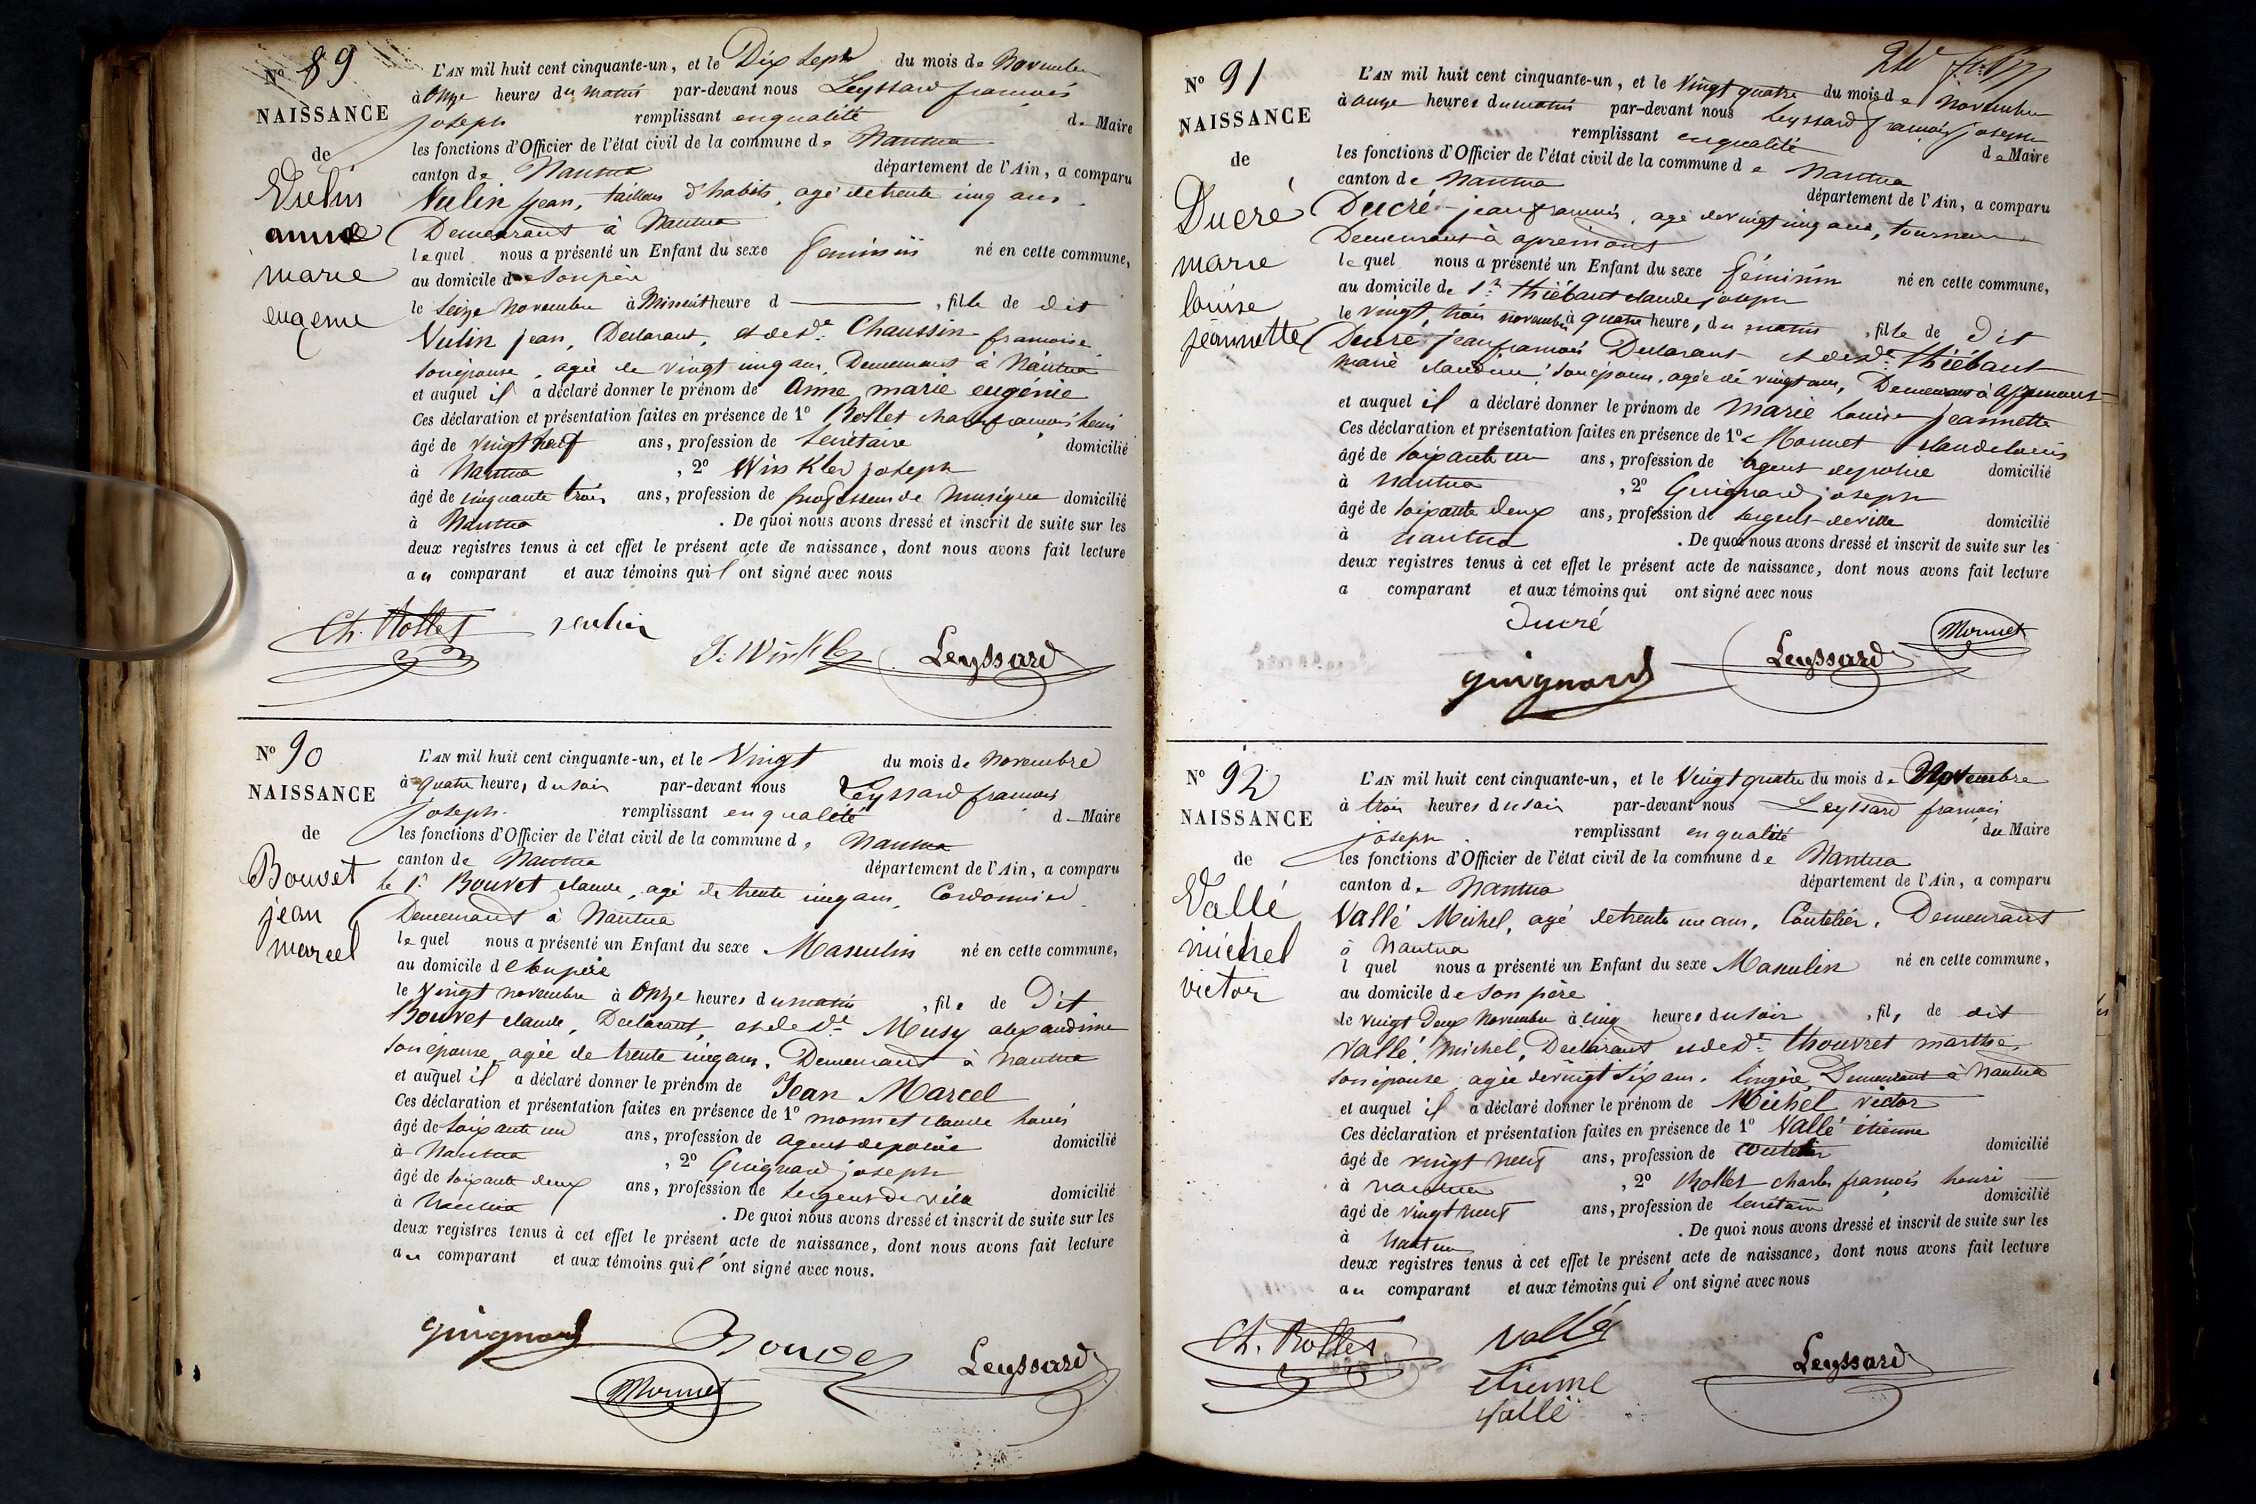 Nº 89
NAISSANCE
de
Vulin
anne
marie
eugénie
L'AN mil huit cent cinquante-un, et le Dix Sept du mois de Novembre
à Onze heures du matin par-devant nous Leyssard françois
joseph remplissant en qualité de Maire
les fonctions d'Officier de l'état civil de la commune de Nantua
canton de Nantua département de l'Ain, a comparu
Vulin jean, tailleur d'habits, agé de trente cinq ans
Demeurant à Nantua
lequel nous a présenté un Enfant du sexe féminin né en cette commune,
au domicile de son père
le seize novembre à Minuit heure d , fille de dit
Vulin jean, Déclarant, et de de Chaussin françoise
son épouse, agée de vingt cinq ans, Demeurant à Nantua
et auquel il a déclaré donner le prénom de Anne marie eugénie
Ces déclaration et présentation faites en présence de 1º Rollet charles françois henri
âgé de vingt neuf ans, profession de Secrétaire domicilié
à Nantua , 2º Winkler joseph
âgé de cinquante trois ans, profession de professeur de musique domicilié
à Nantua . De quoi nous avons dressé et inscrit de suite sur les
deux registres tenus à cet effet le présent acte de naissance, dont nous avons fait lecture
au comparant et aux témoins qui l'ont signé avec nous
Ch. Rollet vulin
J. Winkler Leyssard
Nº 90
NAISSANCE
de
Bouvet
jean
marcel
L'AN mil huit cent cinquante-un, et le Vingt du mois de novembre
à quatre heures du soir par-devant nous Leyssard françois
joseph remplissant en qualité de Maire
les fonctions d'Officier de l'état civil de la commune de Nantua
canton de Nantua département de l'Ain, a comparu
le Sr Bouvet claude, agé de trente cinq ans, Cordonnier
Demeurant à Nantua
lequel nous a présenté un Enfant du sexe Masculin né en cette commune,
au domicile de son père
le Vingt novembre à Onze heures du matin , fils de Dit
Bouvet claude, Déclarant, et de de Musy alexandrine
son épouse, agée de trente cinq ans, Demeurant à Nantua
et auquel il a déclaré donner le prénom de Jean Marcel
Ces déclaration et présentation faites en présence de 1º monnet claude louis
âgé de soixante un ans, profession de agent de police domicilié
à Nantua , 2º Guignard joseph
âgé de soixante deux ans, profession de sergent de ville domicilié
à Nantua . De quoi nous avons dressé et inscrit de suite sur les
deux registres tenus à cet effet le présent acte de naissance, dont nous avons fait lecture
au comparant et aux témoins qui l'ont signé avec nous.
guignard Bouvet Leyssard
Monnet
Nº 91
NAISSANCE
de
Ducré
marie
louise
jeannette
L'AN mil huit cent cinquante-un, et le Vingt quatre du mois de novembre
à onze heures du matin par-devant nous Leyssard françois joseph
remplissant en qualité de Maire
les fonctions d'Officier de l'état civil de la commune de Nantua
canton de Nantua département de l'Ain, a comparu
Ducré jean françois, agé de vingt cinq ans, tourneur
Demeurant à apremont
lequel nous a présenté un Enfant du sexe féminin né en cette commune,
au domicile de Sr thiébaut claude joseph
le vingt trois novembre à quatre heures du matin , fille de Dit
Ducré jean françois Déclarant et de de thiébaut
marie claudine son épouse, agée de vingt ans, Demeurant à apremont
et auquel il a déclaré donner le prénom de Marie Louise jeannette
Ces déclaration et présentation faites en présence de 1º Monnet claude louis
âgé de soixante un ans, profession de agent de police domicilié
à Nantua , 2º Guignard joseph
âgé de soixante deux ans, profession de sergent de ville domicilié
à nantua . De quoi nous avons dressé et inscrit de suite sur les
deux registres tenus à cet effet le présent acte de naissance, dont nous avons fait lecture
a comparant et aux témoins qui ont signé avec nous
Ducré
guignard Leyssard Monnet
Nº 92
NAISSANCE
de
Vallé
michel
victor
L'AN mil huit cent cinquante-un, et le Vingt quatre du mois de Novembre
à trois heures du soir par-devant nous Leyssard françois
joseph remplissant en qualité de Maire
les fonctions d'Officier de l'état civil de la commune de Nantua
canton de Nantua département de l'Ain, a comparu
Vallé Michel, agé de trente un ans, Coutelier, Demeurant
à Nantua
l quel nous a présenté un Enfant du sexe Masculin né en cette commune,
au domicile de son père
le vingt Deux Novembre à cinq heures du soir , fils de dit
Vallé Michel, Déclarant et de de thouvret marthe,
son épouse agée de vingt six ans, lingère, Demeurant à Nantua
et auquel il a déclaré donner le prénom de Michel victor
Ces déclaration et présentation faites en présence de 1º Vallé étienne
âgé de vingt neuf ans, profession de coutelier domicilié
à nantua , 2º Rollet charles françois henri
âgé de vingt neuf ans, profession de secrétaire domicilié
à Nantua . De quoi nous avons dressé et inscrit de suite sur les
deux registres tenus à cet effet le présent acte de naissance, dont nous avons fait lecture
au comparant et aux témoins qui l'ont signé avec nous
Ch. Rollet vallé Leyssard
etienne
vallé